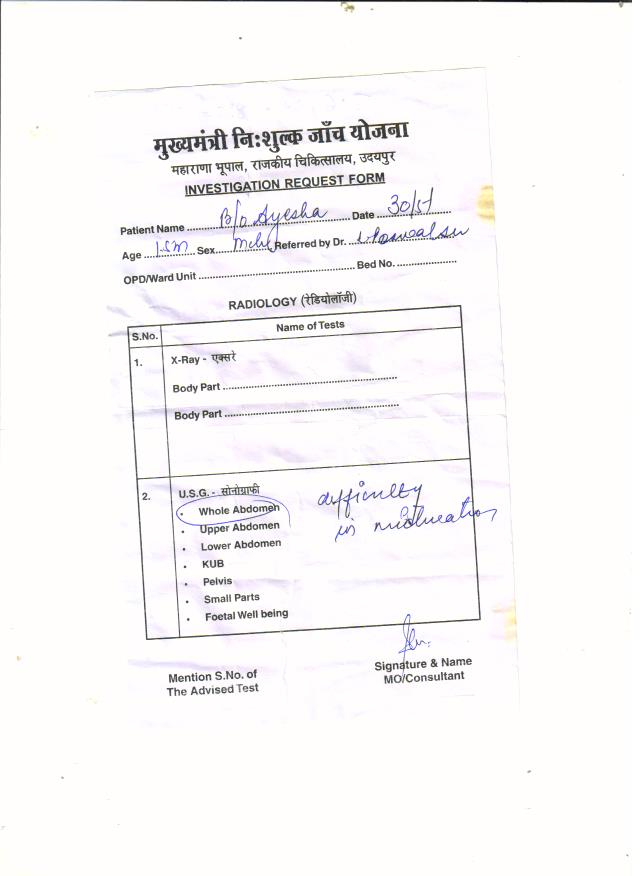 मुख्यमंत्री निःशुल्क जाँच योजना
महाराणा भूपाल, राजकीय चिकित्सालय, उदयपुर
INVESTIGATION REQUEST FORM
Patient Name ........ B/o Ayesha ........ Date ... 30/5/ ...
Age ........ Sex ........ Referred by Dr. ........
OPD/Ward Unit ........ Bed No. ........
RADIOLOGY (रेडियोलॉजी)
S.No. Name of Tests
1. X-Ray - एक्सरे
Body Part ........
Body Part ........
2. U.S.G. - सोनोग्राफी
• Whole Abdomen
• Upper Abdomen
• Lower Abdomen
• KUB
• Pelvis
• Small Parts
• Foetal Well being
difficulty
in micturation
Mention S.No. of
The Advised Test
Signature & Name
MO/Consultant